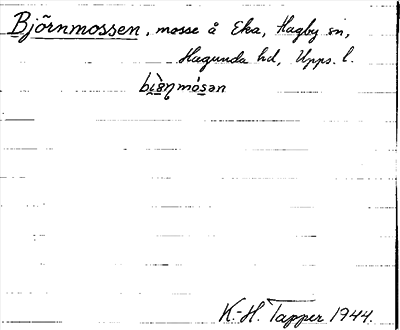 Björnmossen, mosse å Eka, Hagby sn,
Hagunda hd, Upps. l.
K.-H. Tapper 1944.